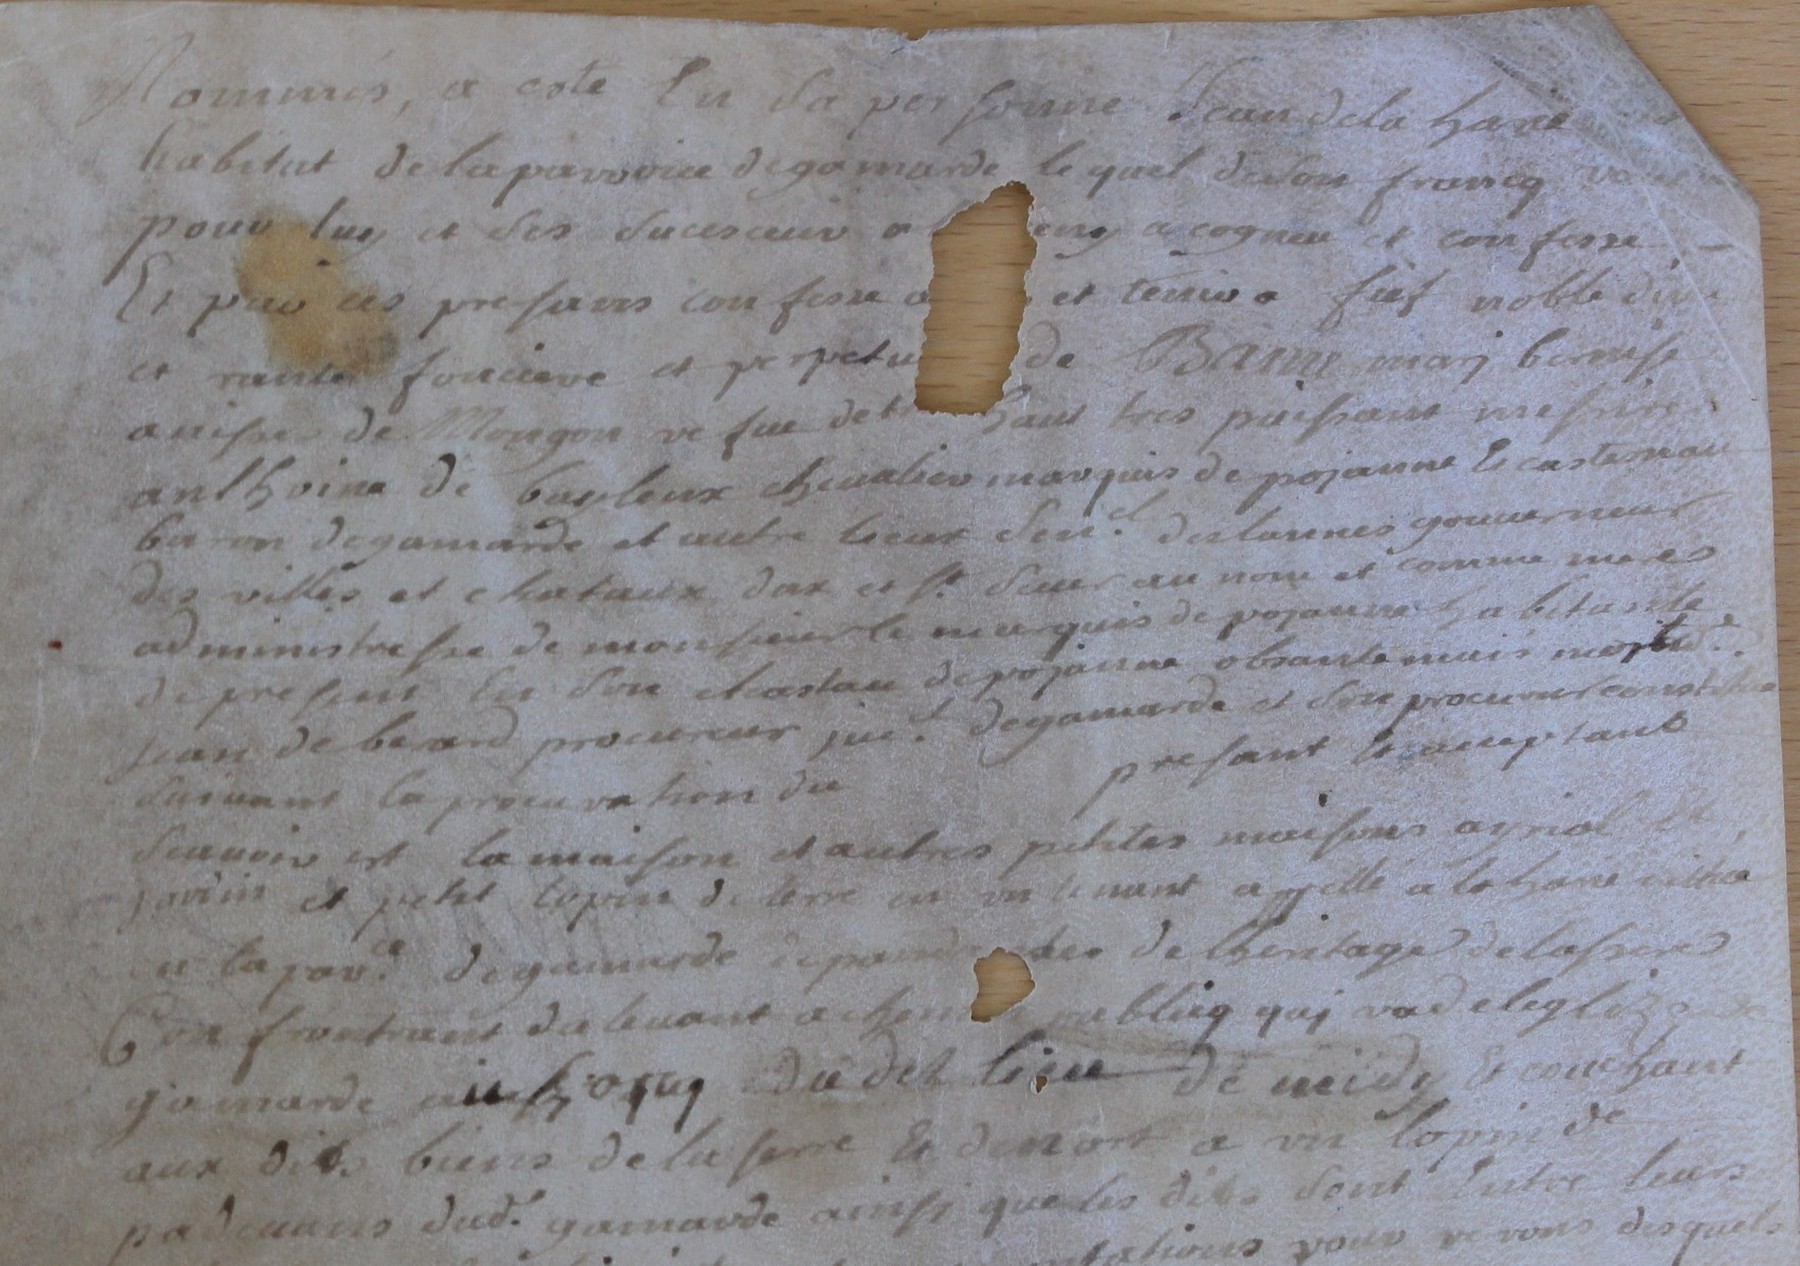 Nommés, a este En sa personne Jean dela haie
habitut de la parroice degamarde lequel deson francq
pour luy et ses sucesseur a cogneu et confesse
Et par ces presans confesse et tenir a fief noble
et rante fonciere et perpetu de Dame marj
de Mongon vefue de haut tres puissant messire
anthoine de bayleux chevalier marquis de pojanne Et castelnau
baron degamarde et autre lieux Sen.el deslannes gouverneur
des villes et chataux dax et St. Sever au nom et comme mere
administresse de monsieur le marquis de pojanne habitante
de present En son chastau de pojanne absante mais
jean de berard procureur degamarde et son procureur constitue
suivant la procuration du presant Et acceptant
scavoir est la maison et autres petites maisons ayrial Et
jardin et petit lopin de terre en un tenant appellé a la haie
en la par.ce degamarde de lheritage delaserre
Confrontant du levant a chemin publicq quj va de leglize de
gamarde du det lieu de midy Et couchant
aux dits biens delaserre Et denort a un lopin de
padeuans dud.t gamarde ainsi que les dits sont Entre leurs
pour verons desquels